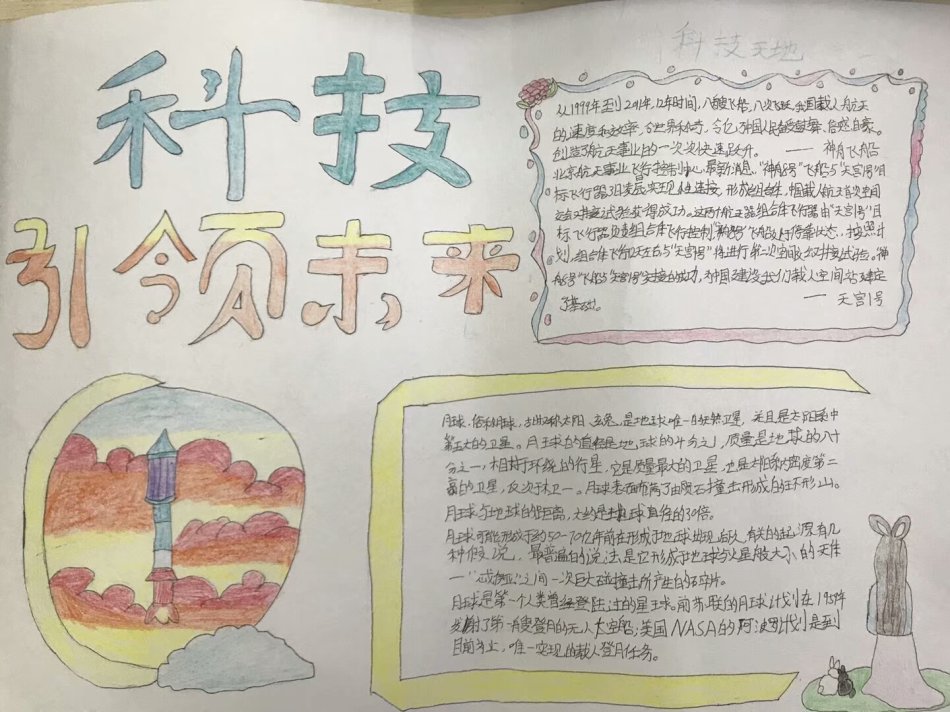 科技天地
科技
引领未来
从1999年至到2011年,12年时间,八艘飞船,八次飞跃,我国载人航天
的速度和效率,令世界称奇,令亿万国人备受鼓舞、倍感自豪。
创造了航天事业上的一次次快速跃升。——神舟飞船
北京航天事业飞行控制中心最新消息,"神舟8号"飞船与"天宫1号"目
标飞行器3日凌晨实现 连接,形成组合体,中国载人航天首次空间
交会对接试验获得成功。这两个航天器组合体飞行器由"天宫1号"目
标飞行器负责组合体飞行控制,"神舟8号"飞船处于停靠状态。按照计
划,组合体飞行12天左右与"天宫1号"将进行第二次空间交会对接试验。"神
舟8号"飞船与天宫1号对接的成功,为中国建设我们载人空间站奠定
了基础!——天宫1号
月球,俗称月球,古时又称太阴、玄兔,是地球唯一的天然卫星,并且是太阳系中
第五大的卫星。月球的直径是地球的四分之一,质量是地球的八十
分之一,相对于环绕的行星,它是质量最大的卫星,也是太阳系内密度第二
高的卫星,仅次于木卫一。月球表面布满了由陨石撞击形成的环形山。
月球与地球的距离,大约是地球直径的30倍。
月球可能形成于约50-70亿年前在形成于地球出现后久,有关的起源有几
种假说,最普遍的说法是它形成于地球与火星般大小的天体
—"忒伊亚"之间一次巨大碰撞击所产生的碎片。
月球是第一个人类曾经登陆过的星球。前苏联的月球计划在1959年
发射了第一艘登月的无人太空船;美国NASA的阿波罗计划是到
目前为止,唯一实现的载人登月任务。